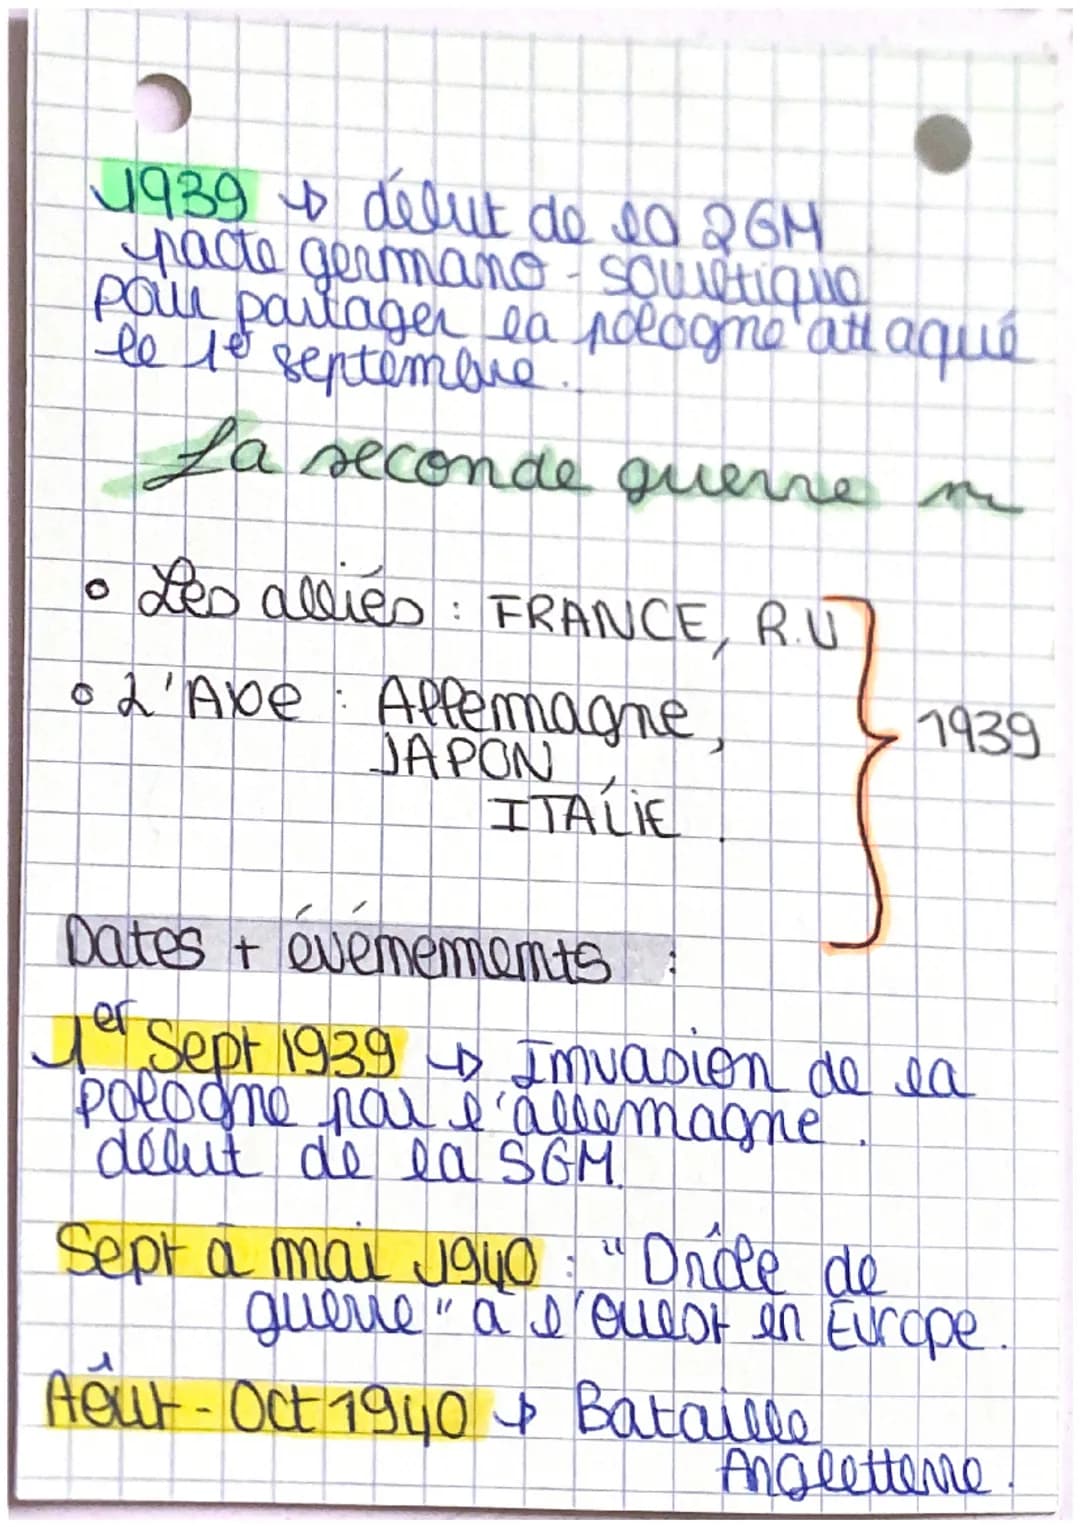 1939 → début de la 2GM
pacte germano-soviétique
pour partager la pologne attaqué
le 1er septembre.
La seconde guerre m
• Les alliés : FRANCE, R.U
• L'Axe : Allemagne,
JAPON
ITALIE.
1939
Dates + événements :
1er Sept 1939 → Invasion de la
pologne par l'allemagne.
début de la SGM.
Sept à mai 1940 : "Drôle de
guerre" à l'ouest en Europe.
Aôut - Oct 1940 → Bataille
Angleterre.